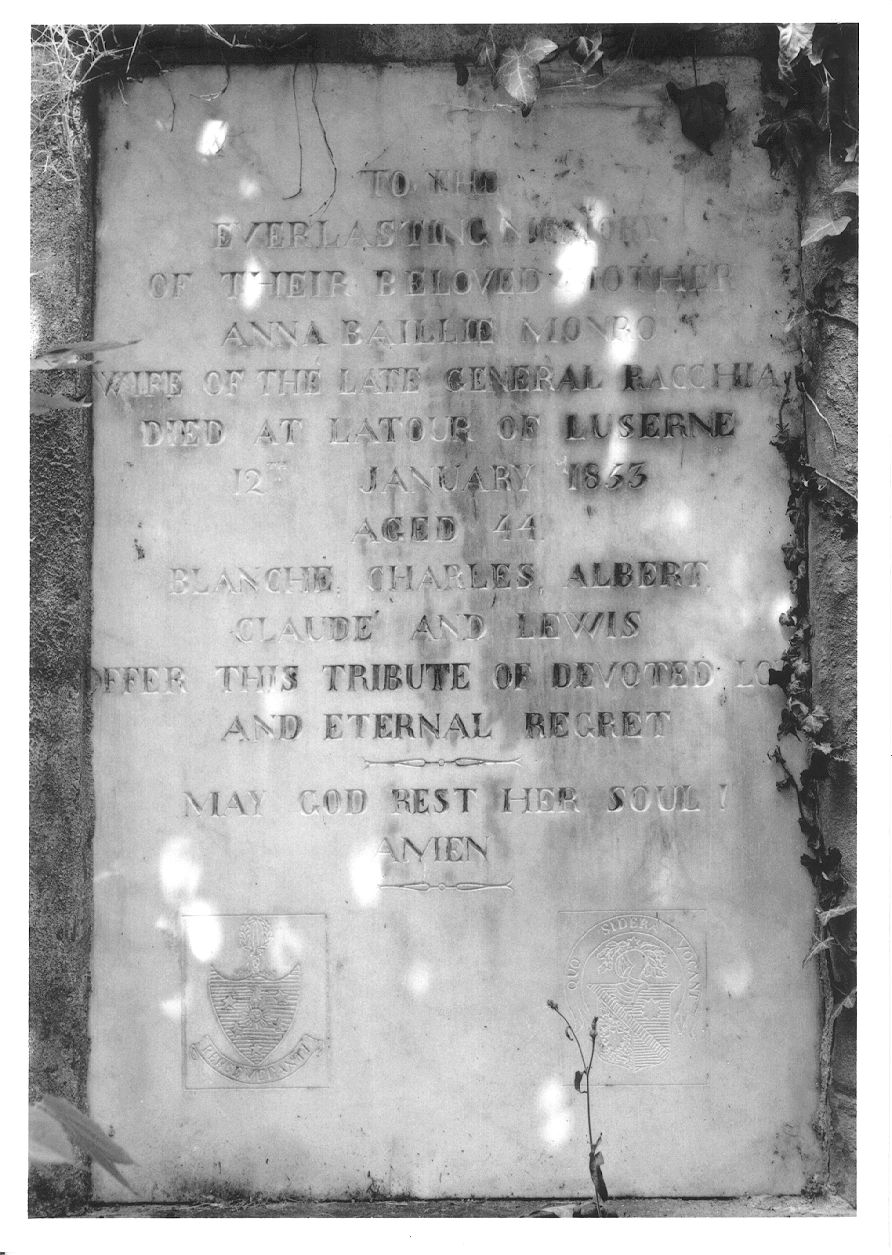 TO THE
EVERLASTING MEMORY
OF THEIR BELOVED MOTHER
ANNA BAILLIE MONRO
WIFE OF THE LATE GENERAL RACCHIA
DIED AT LATOUR OF LUSERNE
12TH JANUARY 1853
AGED 44
BLANCHE, CHARLES, ALBERT,
CLAUDE AND LEWIS
OFFER THIS TRIBUTE OF DEVOTED LO
AND ETERNAL REGRET
MAY GOD REST HER SOUL!
AMEN
QUO SIDERA VOCANT